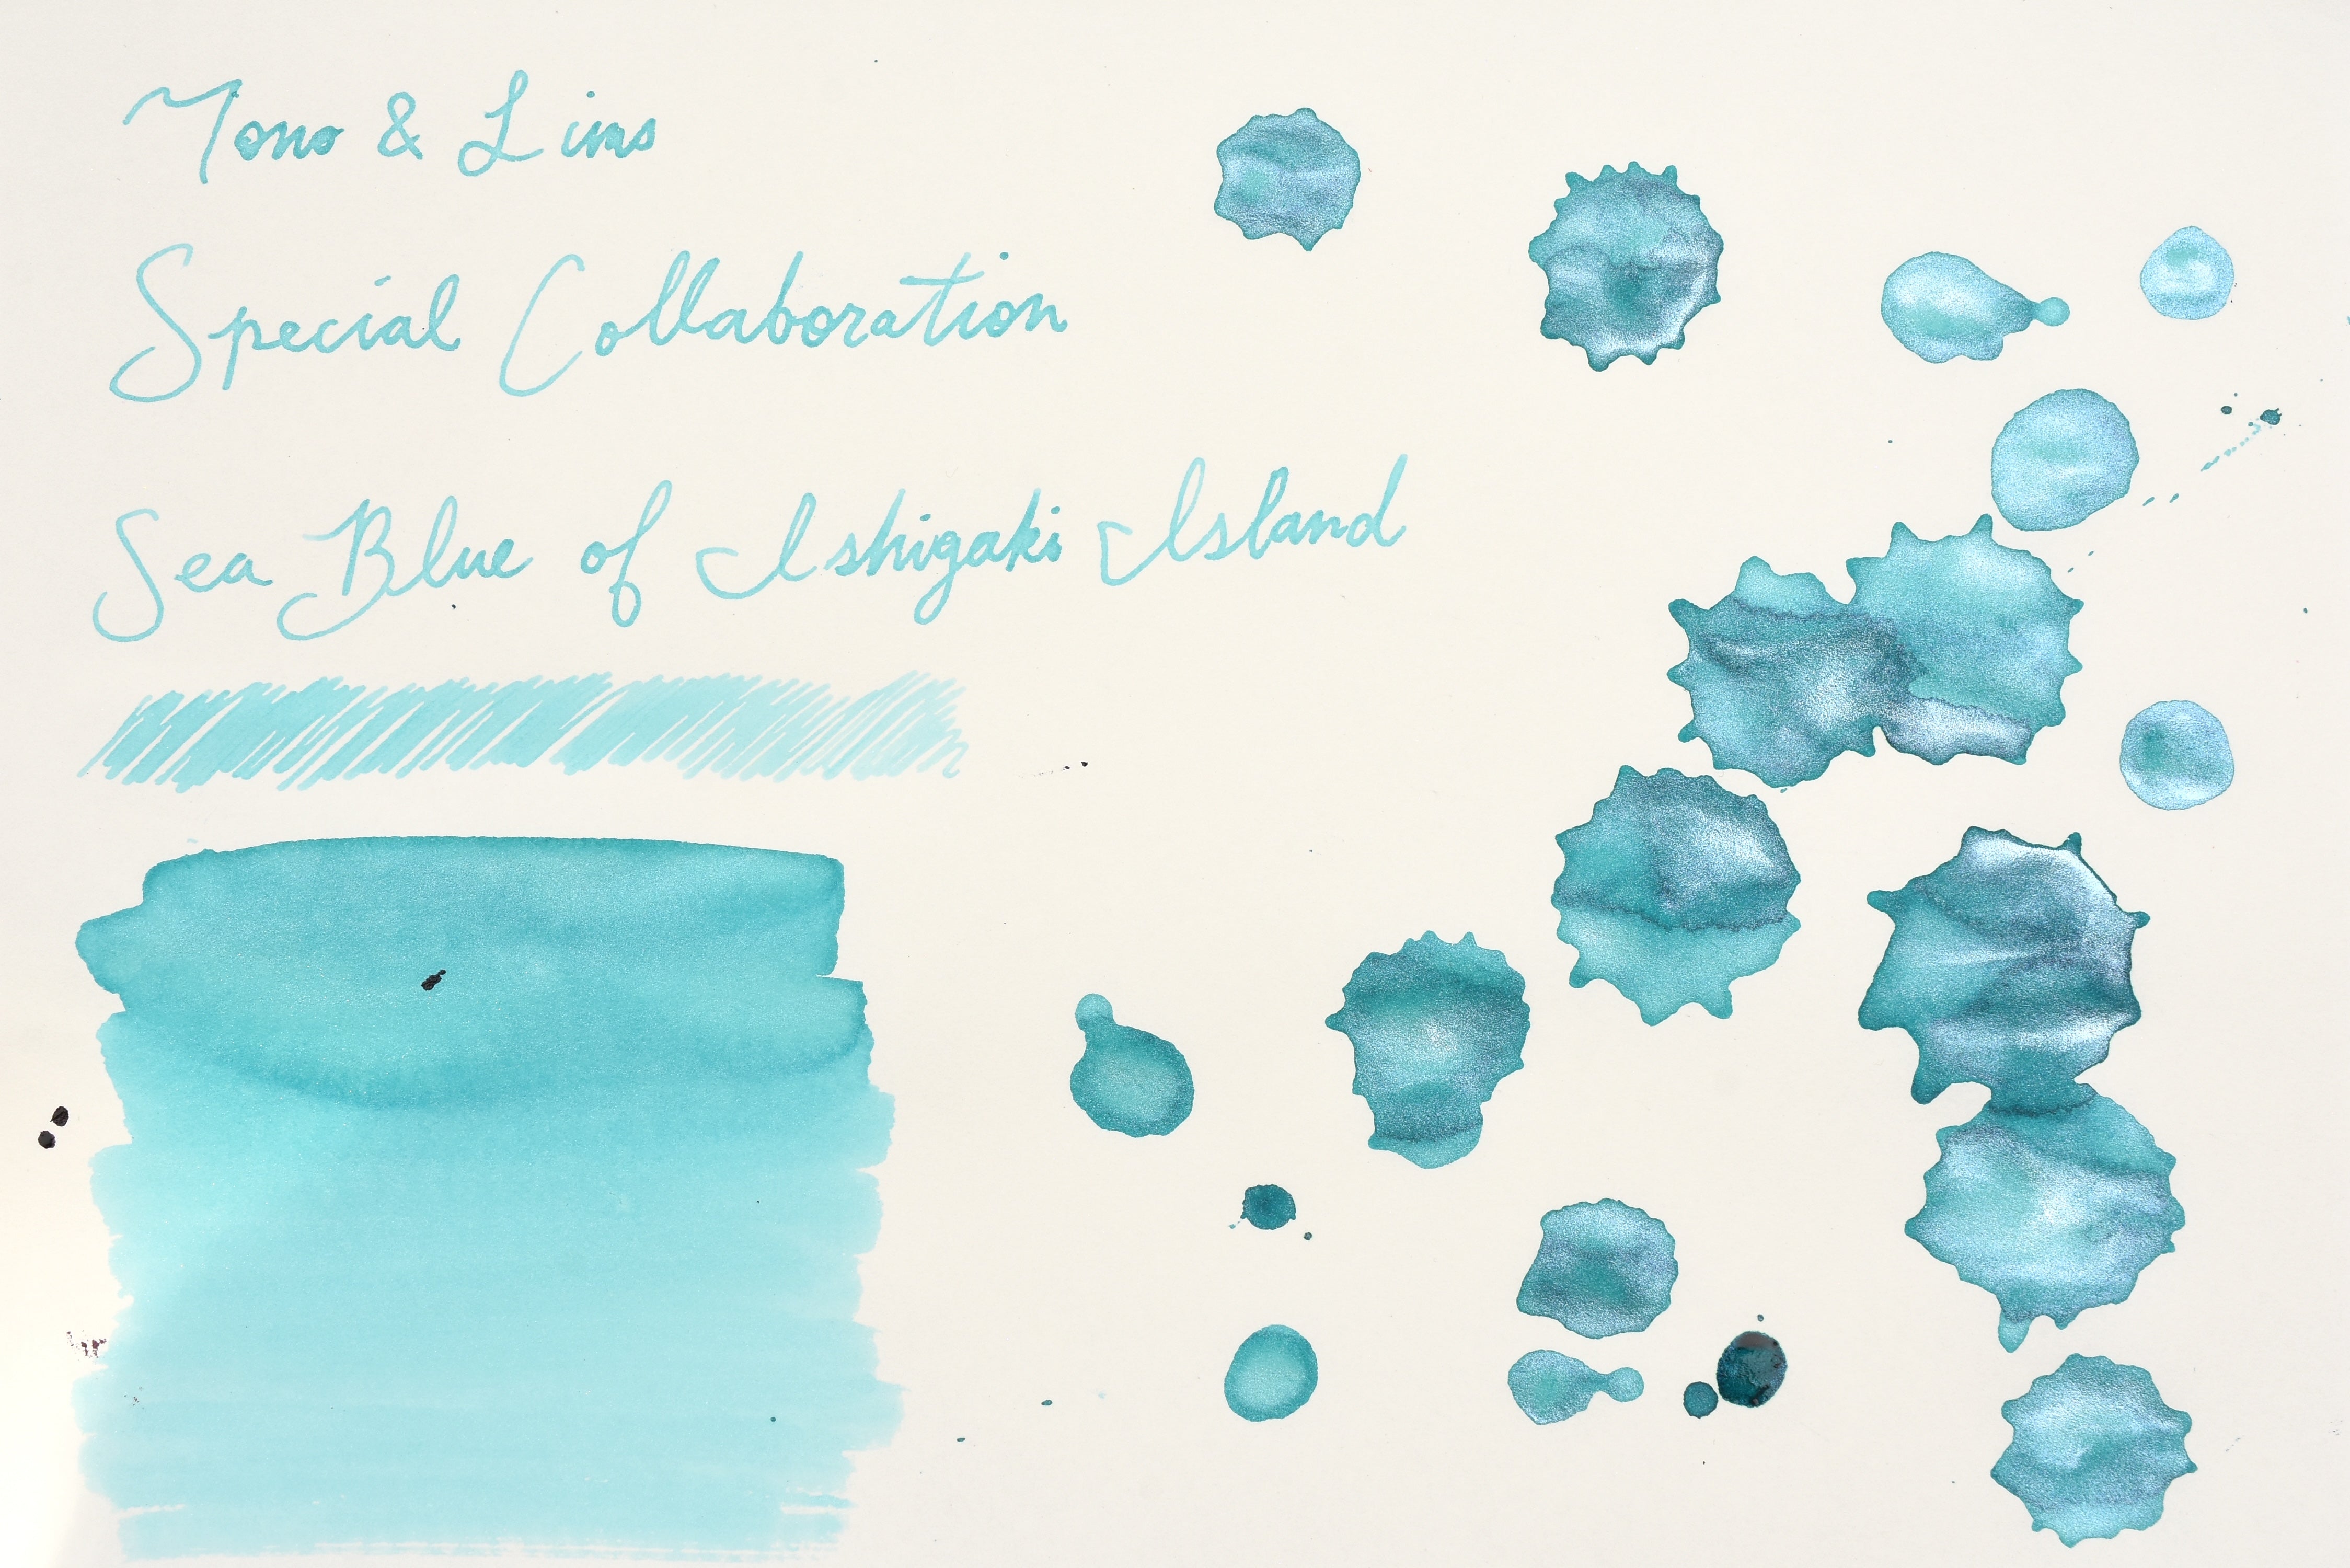 Tono & Lims
Special Collaboration
Sea Blue of Ishigaki Island